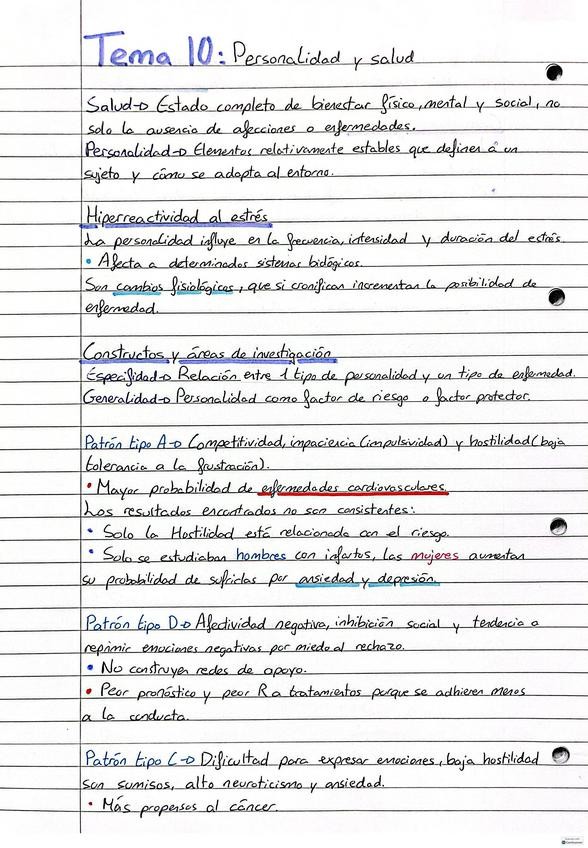 Tema 10: Personalidad y salud
Salud→ Estado completo de bienestar físico, mental y social, no
solo la ausencia de afecciones o enfermedades.
Personalidad→ Elementos relativamente estables que definen a un
sujeto y cómo se adapta al entorno.
Hiperreactividad al estrés
La personalidad influye en la frecuencia, intensidad y duración del estrés.
• Afecta a determinados sistemas biológicos.
Son cambios fisiológicos, que si cronifican incrementan la posibilidad de
enfermedad.
Constructos y áreas de investigación
Especifidad→ Relación entre 1 tipo de personalidad y un tipo de enfermedad.
Generalidad→ Personalidad como factor de riesgo o factor protector.
Patrón tipo A→ Competitividad, impaciencia (impulsividad) y hostilidad (baja
tolerancia a la frustración).
• Mayor probabilidad de enfermedades cardiovasculares.
Los resultados encontrados no son consistentes:
• Solo la Hostilidad está relacionada con el riesgo.
• Solo se estudiaban hombres con infartos, las mujeres aumentan
su probabilidad de sufrirlas por ansiedad y depresión.
Patrón tipo D→ Afectividad negativa, inhibición social y tendencia a
reprimir emociones negativas por miedo al rechazo.
• No construyen redes de apoyo.
• Peor pronóstico y peor R a tratamientos porque se adhieren menos
a la conducta.
Patrón tipo C→ Dificultad para expresar emociones, baja hostilidad
son sumisos, alto neuroticismo y ansiedad.
• Más propensos al cáncer.